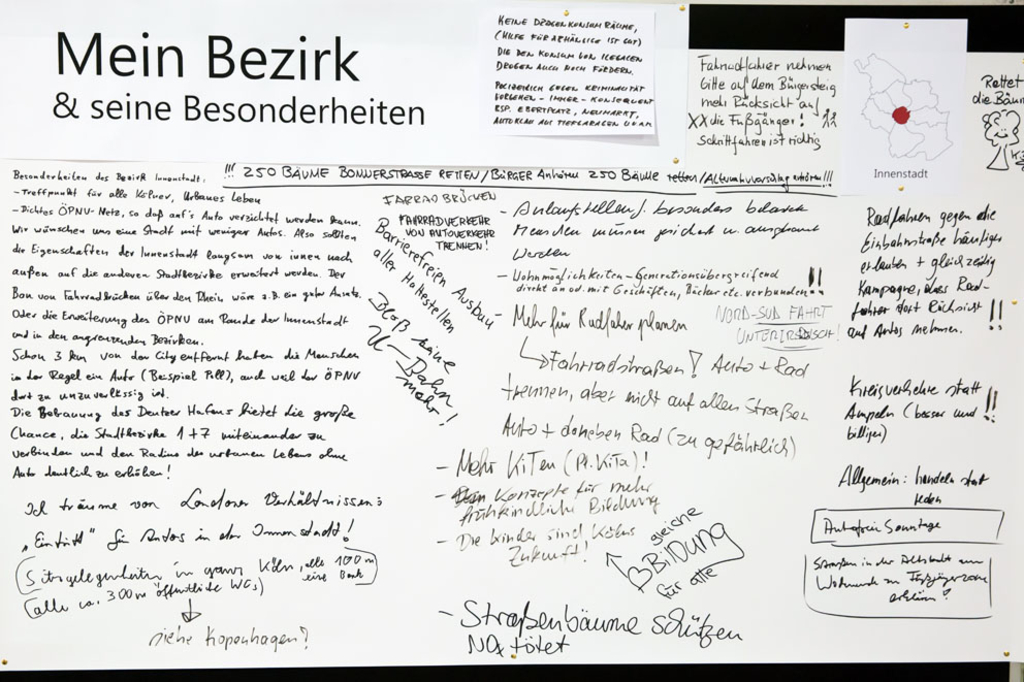 Mein Bezirk
& seine Besonderheiten
KEINE DROGENKONSUMRÄUME,
(HILFE FÜR ABHÄNGIGE IST GUT)
DIE DEN KONSUM VON ILLEGALEN
DROGEN AUCH NOCH FÖRDERN.
POLIZEILICH GEGEN KRIMINALITÄT
VORGEHEN - IMMER - KONSEQUENT
BSP. EBERTPLATZ, NEUMARKT,
AUTOKLAU AUS TIEFGARAGEN U.V.M.
Fahrradfahrer nehmen
bitte auf dem Bürgersteig
mehr Rücksicht auf
XX die Fußgänger!
Schrittfahren ist richtig
Innenstadt
Rettet
die Bäume
!!! 250 BÄUME BONNERSTRASSE RETTEN / BÜRGER Anhören 250 BÄUME retten / Alternativvorschlag anhören!!!
Besonderheiten des Bezirk Innenstadt.
- Treffpunkt für alle Kölner, Urbanes Leben
- Dichtes ÖPNV-Netz, so daß auf's Auto verzichtet werden kann.
Wir wünschen uns eine Stadt mit weniger Autos. Also sollten
die Eigenschaften der Innenstadt langsam von innen nach
außen auf die anderen Stadtbezirke erweitert werden. Der
Bau von Fahrradbrücken über den Rhein wäre z.B. ein guter Ansatz.
Oder die Erweiterung des ÖPNV am Rande der Innenstadt
und in den angrenzenden Bezirken.
Schon 3 km von der City entfernt haben die Menschen
in der Regel ein Auto (Beispiel Poll), auch weil der ÖPNV
dort zu unzuverlässig ist.
Die Bebauung des Deutzer Hafens bietet die große
Chance, die Stadtbezirke 1+7 miteinander zu
verbinden und den Radius des urbanen Lebens ohne
Auto deutlich zu erhöhen!
Ich träume von Londoner Verhältnissen:
„Eintritt" für Autos in der Innenstadt!
Sitzgelegenheiten in ganz Köln, alle 100 m
eine Bank
(alle ca. 300 m öffentliche WCs)
siehe Kopenhagen?
FAHRRADBRÜCKEN
FAHRRADVERKEHR
VON AUTOVERKEHR
TRENNEN!
Barrierefreien Ausbau
aller Haltestellen
Bloß keine
U-Bahn
mehr!
- Anlaufstellen f. besonders belastete
Menschen müssen gesichert u. ausgebaut
werden
- Wohnmöglichkeiten - Generationsübergreifend
direkt an od. mit Geschäften, Bäcker etc. verbunden!!
Mehr für Radfahrer planen
NORD-SÜD FAHRT
UNTERIRDISCH!
Fahrradstraßen! Auto + Rad
trennen, aber nicht auf allen Straßen
Auto + daneben Rad (zu gefährlich)
- Mehr KiTen (Pl. KiTa)!
- Konzepte für mehr
frühkindliche Bildung
- Die Kinder sind Kölns
Zukunft!
gleiche
BILDUNG
für alle
- Straßenbäume schützen
NOx tötet
Radfahren gegen die
Einbahnstraße häufiger
erlauben + gleichzeitig
Kampagne, dass Rad-
fahrer dort Rücksicht
auf Autos nehmen. !!
Kreisverkehre statt
Ampeln (besser und
billiger) !!
Allgemein: handeln statt
reden
Autofreie Sonntage
Straßen in der Altstadt am
Wochenende zu Fußgängerzone
erklären!